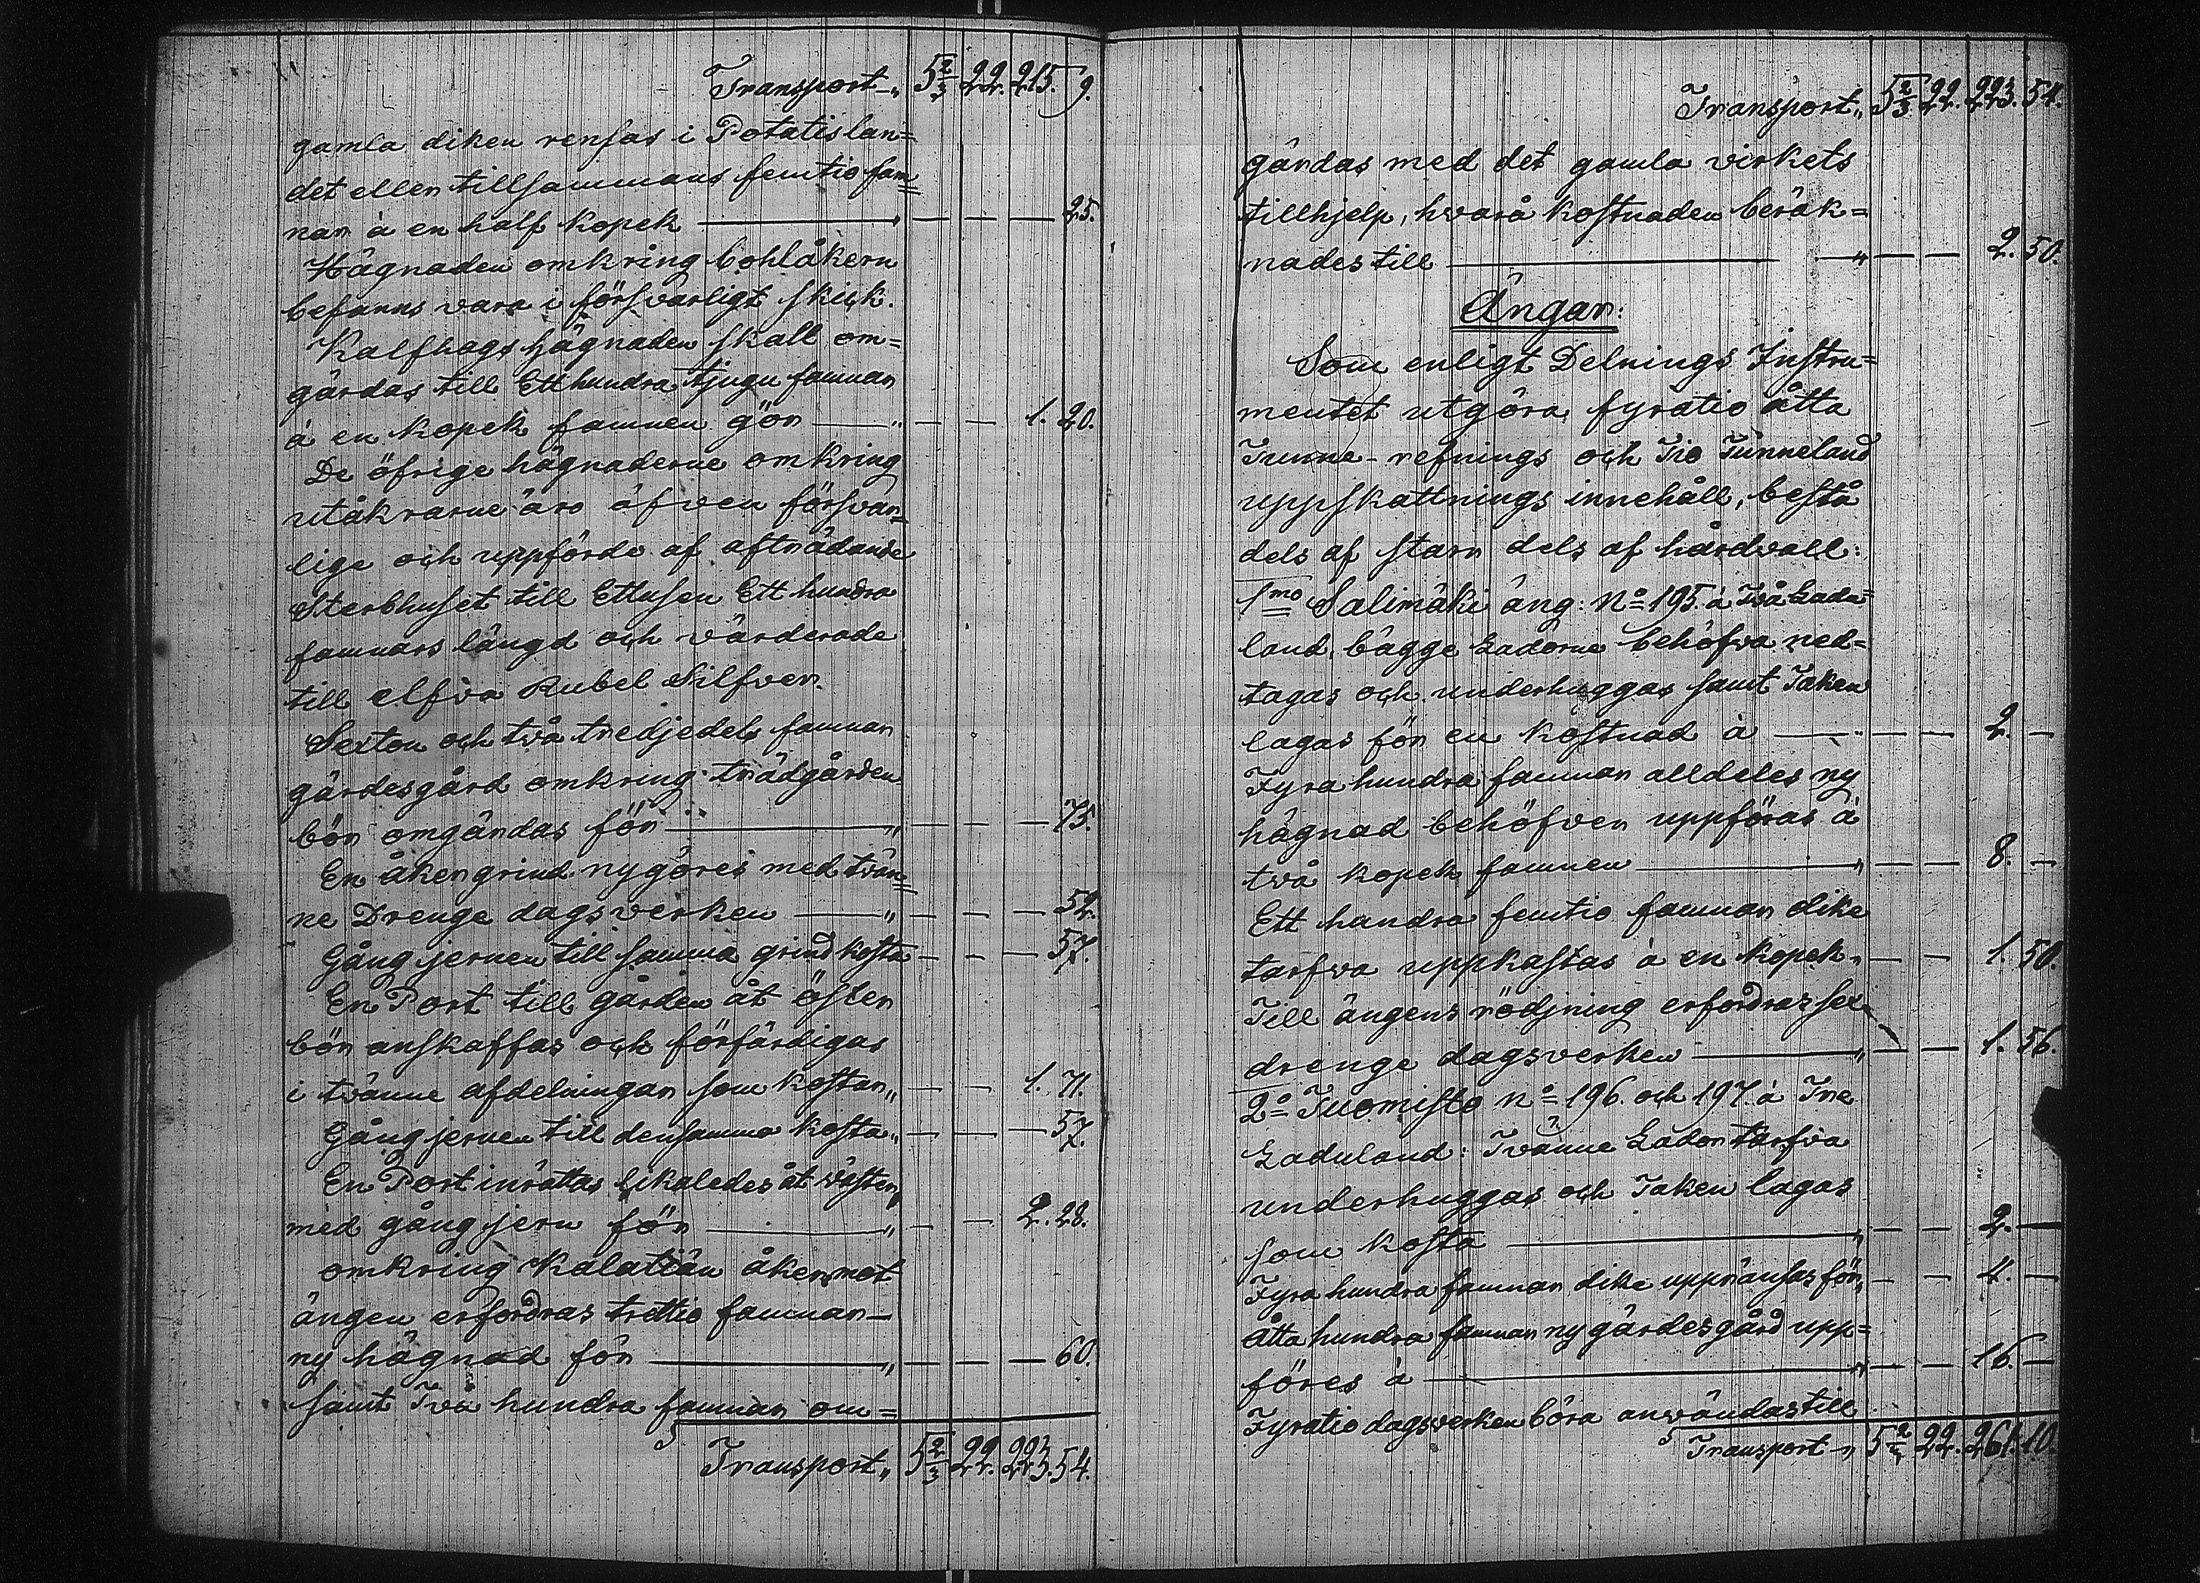 Transport „ 5 2/3 22. 215. 9.
gamla diken rensas i Potatislan=
det eller tillsammans femtio fam=
nar à en half kopek — „ — — — 25.
Hägnaden omkring bohlåkern
befanns vara i försvarligt skick.
Kalfhags hägnaden skall om=
gärdas till Etthundra tjugu famnar
à en kopek famnen gör — „ — — 1. 20.
De öfrige hägnaderne omkring
utåkrarne äro äfven försvar=
lige och uppförde af afträdande
Sterbhuset till Ettusen Ett hundra
famnars längd och värderade
till elfva Rubel Silfver.
Sexton och två tredjedels famnar
gärdesgård omkring trädgården
bör omgärdas för — „ — — — 75.
En åkergrind nygöres med tvän=
ne Drenge dagsverken — „ — — — 52.
Gångjernen till samma grind kosta — — — 57.
En Port till gården åt öster
bör anskaffas och förfärdigas
i tvänne afdelningar som kostar „ — — 1. 71.
Gångjernen till densamma kosta „ — — — 57.
En Port inrättas likaledes åt väster
med gångjern för — „ — — 2. 28.
omkring Kalatiän åker mot
ängen erfordras trettio famnar —
ny hägnad för — „ — — — 60.
samt Två hundra famnar om=
Transport „ 5 2/3 22. 223. 54.
Transport „ 5 2/3 22. 223. 54.
gärdas med det gamla virkets
tillhjelp, hvarå kostnaden beräk=
nades till — „ — — 2. 50.
Ängar:
Som enligt Delnings Instru=
mentet utgöra fyratio åtta
Tunne-refnings och Tio Tunneland
uppskattnings innehåll, bestå
dels af starr dels af hårdvall:
1mo Salimäki äng: No 195. à Två Lada=
land, bägge Ladorne behöfva ned=
tagas och underhuggas samt Taken
lagas för en kostnad à — „ — — 2. —
Fyra hundra famnar alldeles ny
hägnad behöfver uppföras à
två kopek famnen — „ — — 8. —
Ett hundra femtio famnar dike
tarfva uppkastas à en kopek „ — — 1. 50.
Till ängens rödjning erfordras sex
drenge dagsverken — „ — — 1. 56.
2o Tuomisto No 196. och 197. à Tre
Laduland: Tvänne Lador tarfva
underhuggas och Taken lagas
som kosta — „ — — 2. —
Fyra hundra famnar dike upprensas för „ — — 4. —
Åtta hundra famnar ny gärdesgård upp=
föres à — „ — — 16. —
Fyratio dagsverken böra användas till
Transport „ 5 2/3 22. 261. 10.